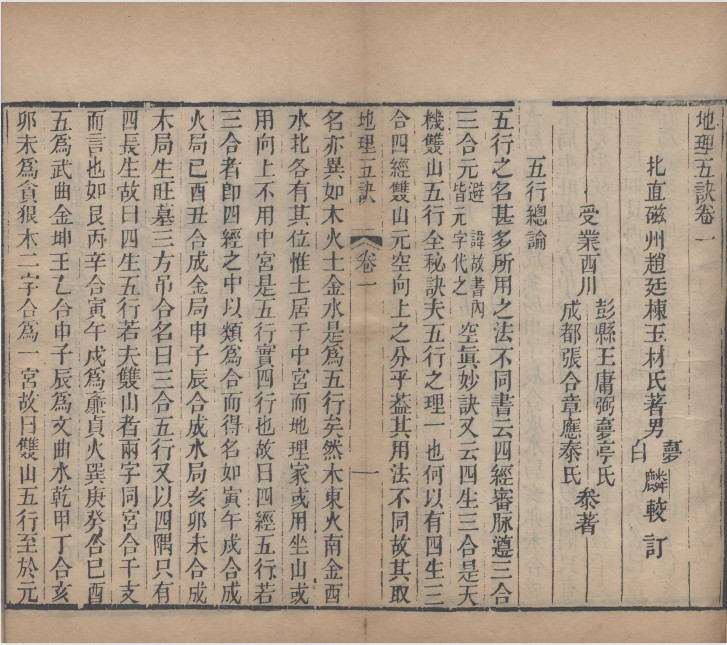 地理五訣卷一
北直磁州趙廷棟玉材氏著男夢白麟較訂
受業西川
彭縣王庸弼夢亭氏
成都張合章應泰氏
叅著
五行總論
五行之名甚多所用之法不同書云四經審脉遵三合
三合元避諱故書內皆元字代之空眞妙訣又云四生三合是天
機雙山五行全秘訣夫五行之理一也何以有四生三
合四經雙山元空向上之分乎葢其用法不同故其取
地理五訣
卷一
一
名亦異如木火土金水是爲五行矣然木東火南金西
水北各有其位惟土居于中宮而地理家或用坐山或
用向上不用中宮是五行實四行也故曰四經五行若
三合者卽四經之中以類爲合而得名如寅午戌合成
火局巳酉丑合成金局申子辰合成水局亥卯未合成
木局生旺墓三方吊合名曰三合五行又以四隅只有
四長生故曰四生五行若夫雙山者兩字同宮合干支
而言也如艮丙辛合寅午戌爲亷貞火巽庚癸合巳酉
丑爲武曲金坤壬乙合申子辰爲文曲水乾甲丁合亥
卯未爲貪狼木二字合爲一宮故曰雙山五行至於元